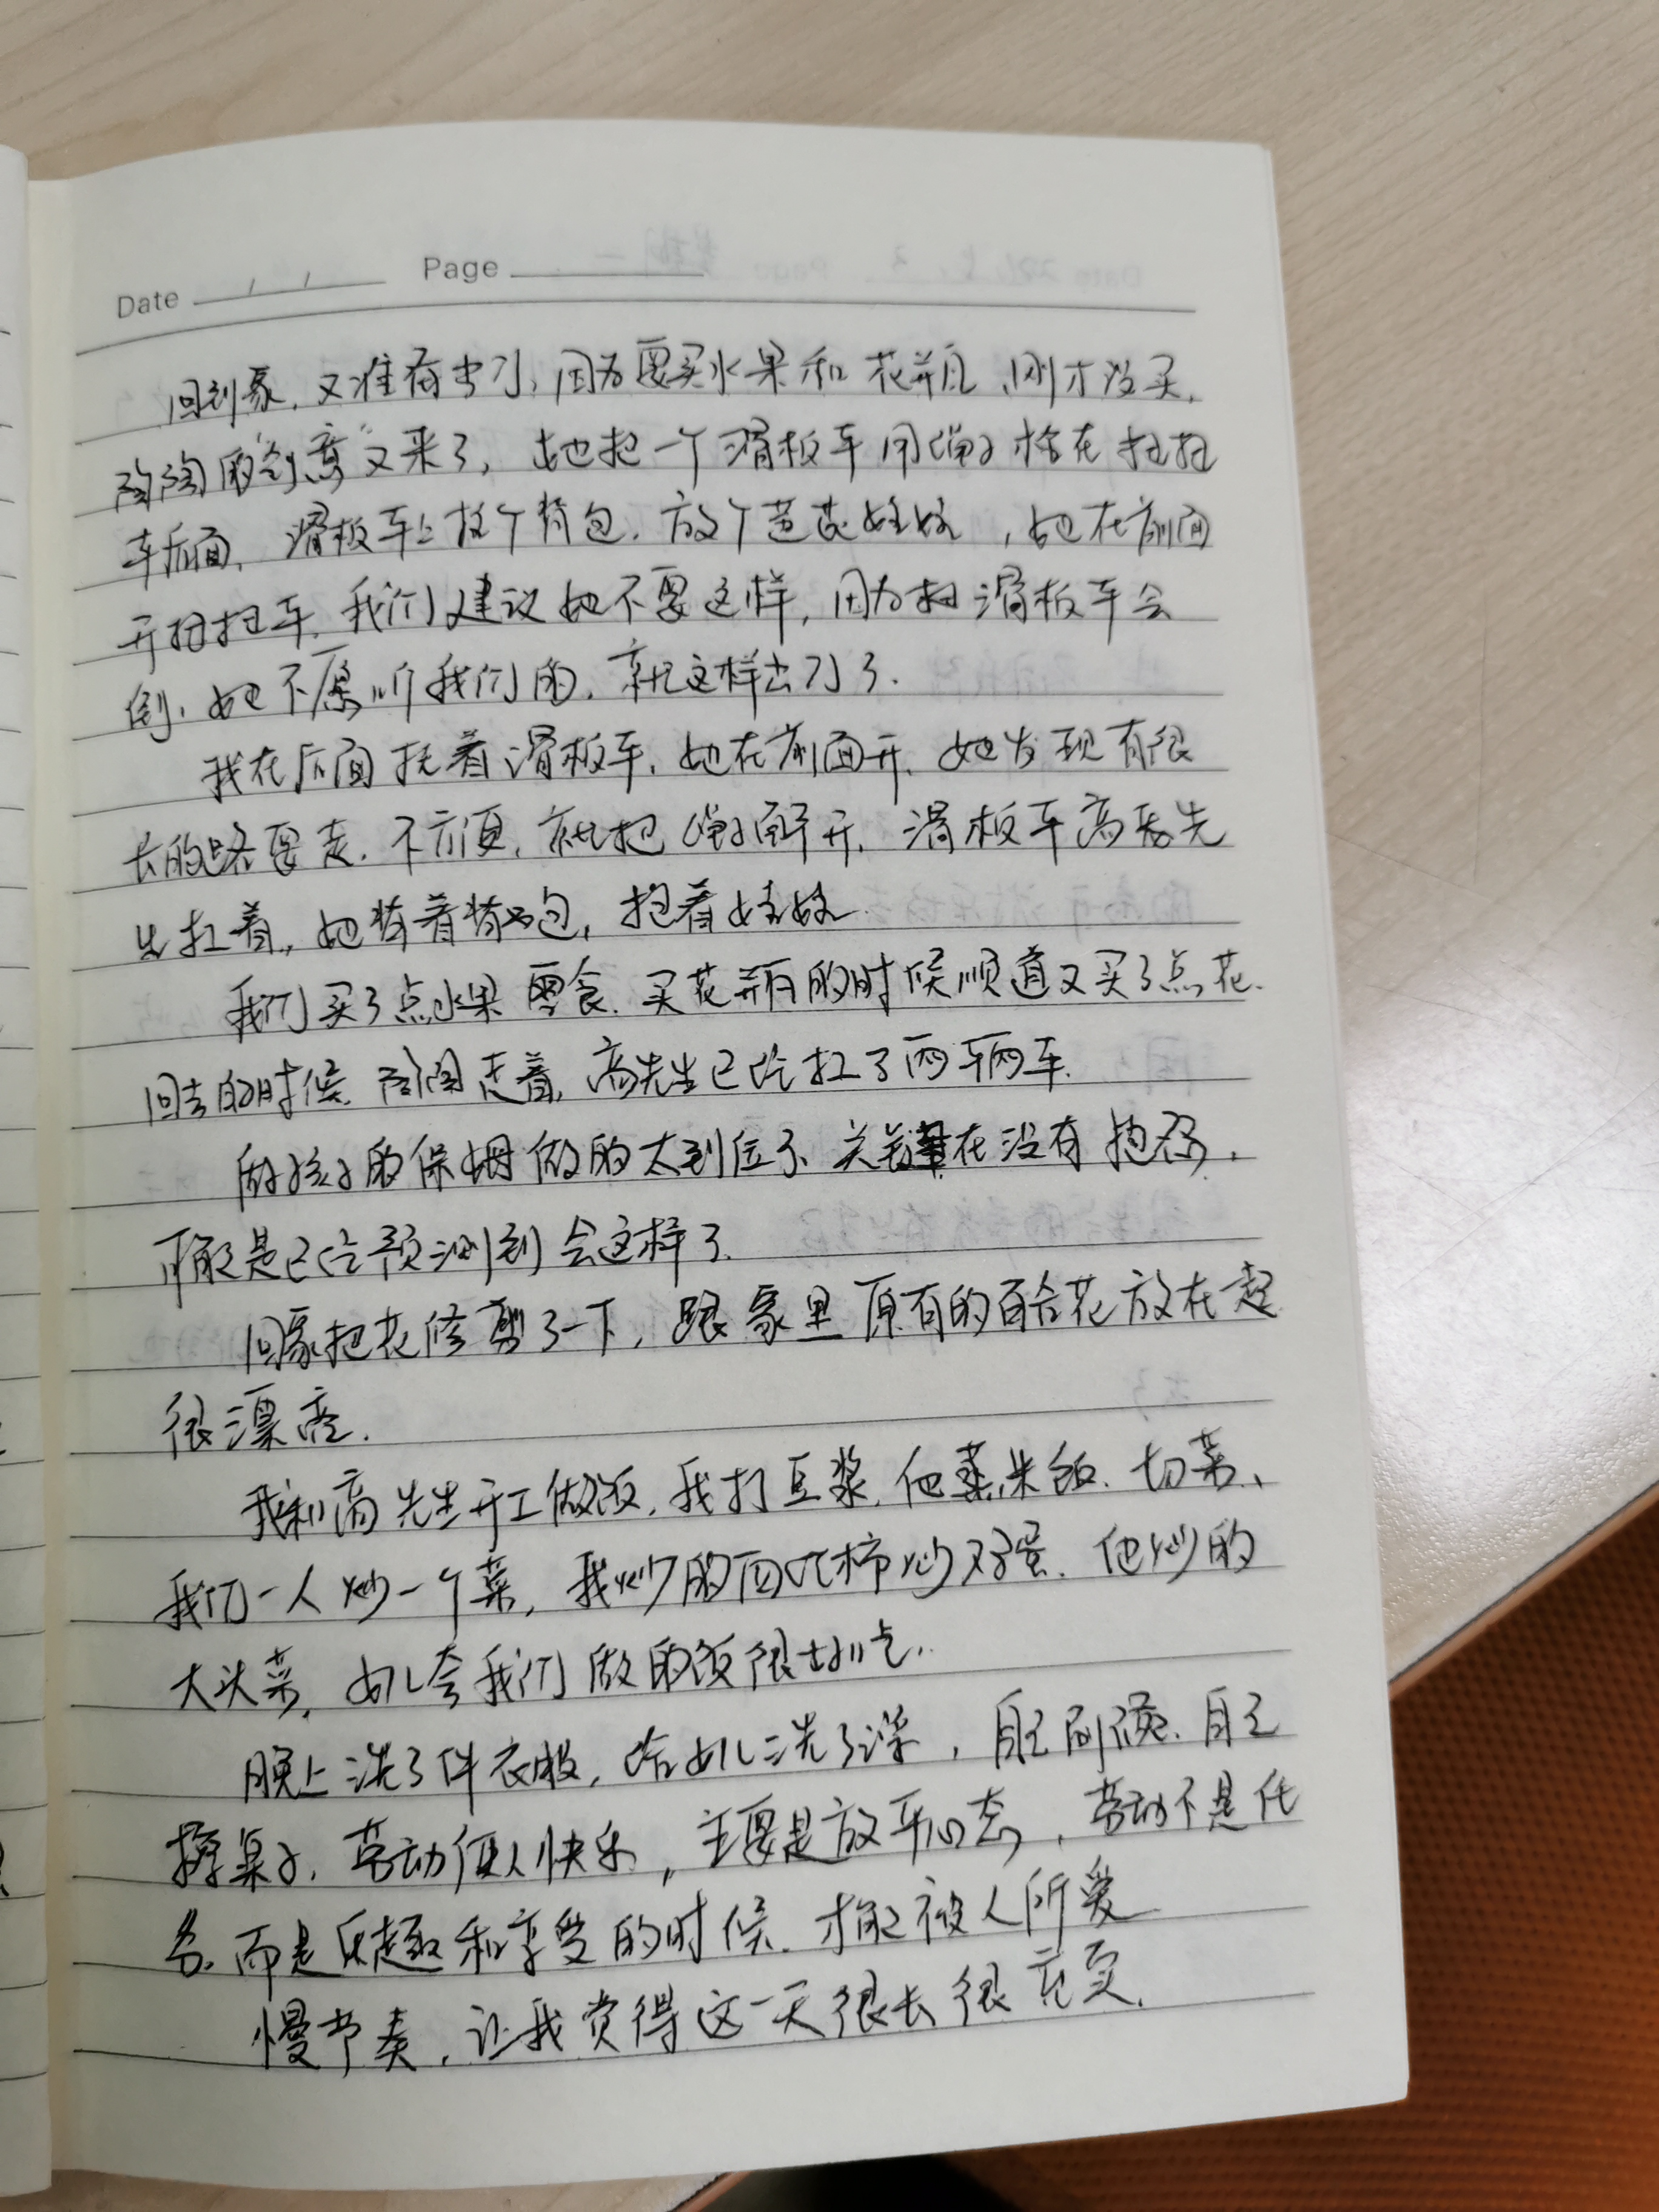 Date / / Page
回到家，又准备出门，因为要买水果和花瓶，刚才没买，
陶陶的"创意"又来了，她把一个滑板车用绳子栓在扭扭
车后面，滑板车上放个背包，放个芭芘娃娃，她在前面
开扭扭车，我们建议她不要这样，因为扭滑板车会
倒，她不愿听我们的，就这样出门了.
我在后面扶着滑板车，她在前面开，她发现有很
长的路要走，不方便，就把绳子解开，滑板车高先
生扛着，她背着背包，抱着娃娃.
我们买了点水果零食，买花瓶的时候顺道又买了点花.
回去的时候，陶陶走着，高先生已经扛了两辆车.
做孩子的保姆做的太到位了，关键在没有抱怨，
可能是已经预测到会这样了.
回家把花修剪了一下，跟家里原有的百合花放在一起
很漂亮.
我和高先生开工做饭，我打豆浆，他蒸米饭、切菜、
我们一人炒一个菜，我炒的西红柿炒鸡蛋，他炒的
大头菜，女儿夸我们做的饭很好吃.
晚上洗了件衣服，给女儿洗了澡，自己刷碗，自己
擦桌子，劳动使人快乐，主要是放平心态，劳动不是任
务，而是乐趣和享受的时候，才能被人所爱
慢节奏，让我觉得这一天很长很充实.